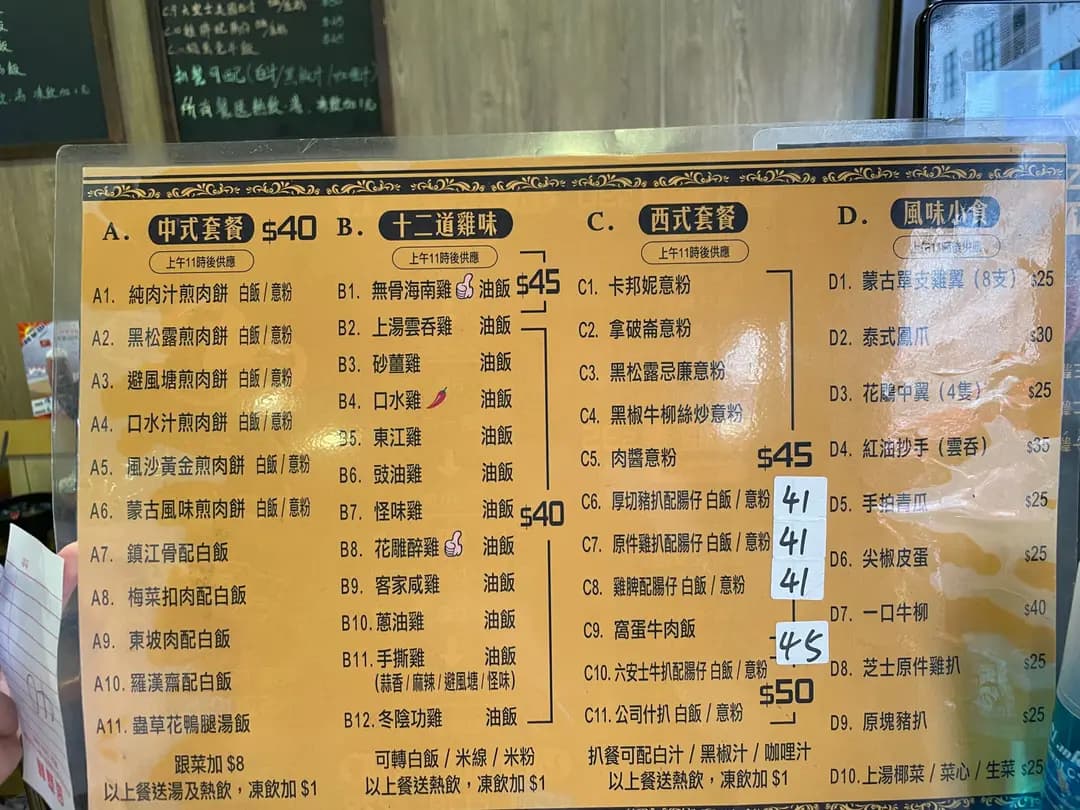 扒餐可配(白汁/黑椒汁/咖哩汁)
所有餐送熱飲
A. 中式套餐 $40
上午11時後供應
A1. 純肉汁煎肉餅 白飯/意粉
A2. 黑松露煎肉餅 白飯/意粉
A3. 避風塘煎肉餅 白飯/意粉
A4. 口水汁煎肉餅 白飯/意粉
A5. 風沙黃金煎肉餅 白飯/意粉
A6. 蒙古風味煎肉餅 白飯/意粉
A7. 鎮江骨配白飯
A8. 梅菜扣肉配白飯
A9. 東坡肉配白飯
A10. 羅漢齋配白飯
A11. 蟲草花鴨腿湯飯
跟菜加 $8
以上餐送湯及熱飲，凍飲加 $1
B. 十二道雞味
上午11時後供應
B1. 無骨海南雞 油飯 $45
B2. 上湯雲吞雞 油飯
B3. 砂薑雞 油飯
B4. 口水雞 油飯
B5. 東江雞 油飯
B6. 豉油雞 油飯
B7. 怪味雞 油飯 $40
B8. 花雕醉雞 油飯
B9. 客家咸雞 油飯
B10. 蔥油雞 油飯
B11. 手撕雞 油飯
(蒜香/麻辣/避風塘/怪味)
B12. 冬陰功雞 油飯
可轉白飯/米線/米粉
以上餐送熱飲，凍飲加 $1
C. 西式套餐
上午11時後供應
C1. 卡邦妮意粉
C2. 拿破崙意粉
C3. 黑松露忌廉意粉
C4. 黑椒牛柳絲炒意粉
C5. 肉醬意粉 $45
C6. 厚切豬扒配腸仔 白飯/意粉 41
C7. 原件雞扒配腸仔 白飯/意粉 41
C8. 雞脾配腸仔 白飯/意粉 41
C9. 窩蛋牛肉飯 45
C10. 六安士牛扒配腸仔 白飯/意粉 $50
C11. 公司什扒 白飯/意粉
扒餐可配白汁/黑椒汁/咖哩汁
以上餐送熱飲，凍飲加 $1
D. 風味小食
上午11時後供應
D1. 蒙古單支雞翼（8支） $25
D2. 泰式鳳爪 $30
D3. 花鵰中翼（4隻） $25
D4. 紅油抄手（雲吞） $35
D5. 手拍青瓜 $25
D6. 尖椒皮蛋 $25
D7. 一口牛柳 $40
D8. 芝士原件雞扒 $25
D9. 原塊豬扒 $25
D10. 上湯椰菜/菜心/生菜 $25